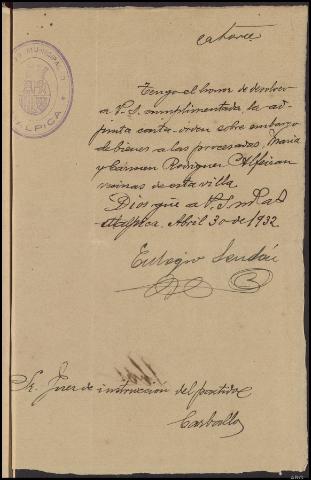 catorce
MUNICIPAL
MALPICA
Tengo el honor de devolver
a V.S. cumplimentada la ad-
junta carta-orden sobre embargo
de bienes a las procesadas, María
y Cármen Rodriguez
vecinas de esta villa.
Dios gûe a V.S. m. a.
Malpica, Abril 30 de 1932
Eulogio
Sr. Juez de instrucción del partido
Carballo